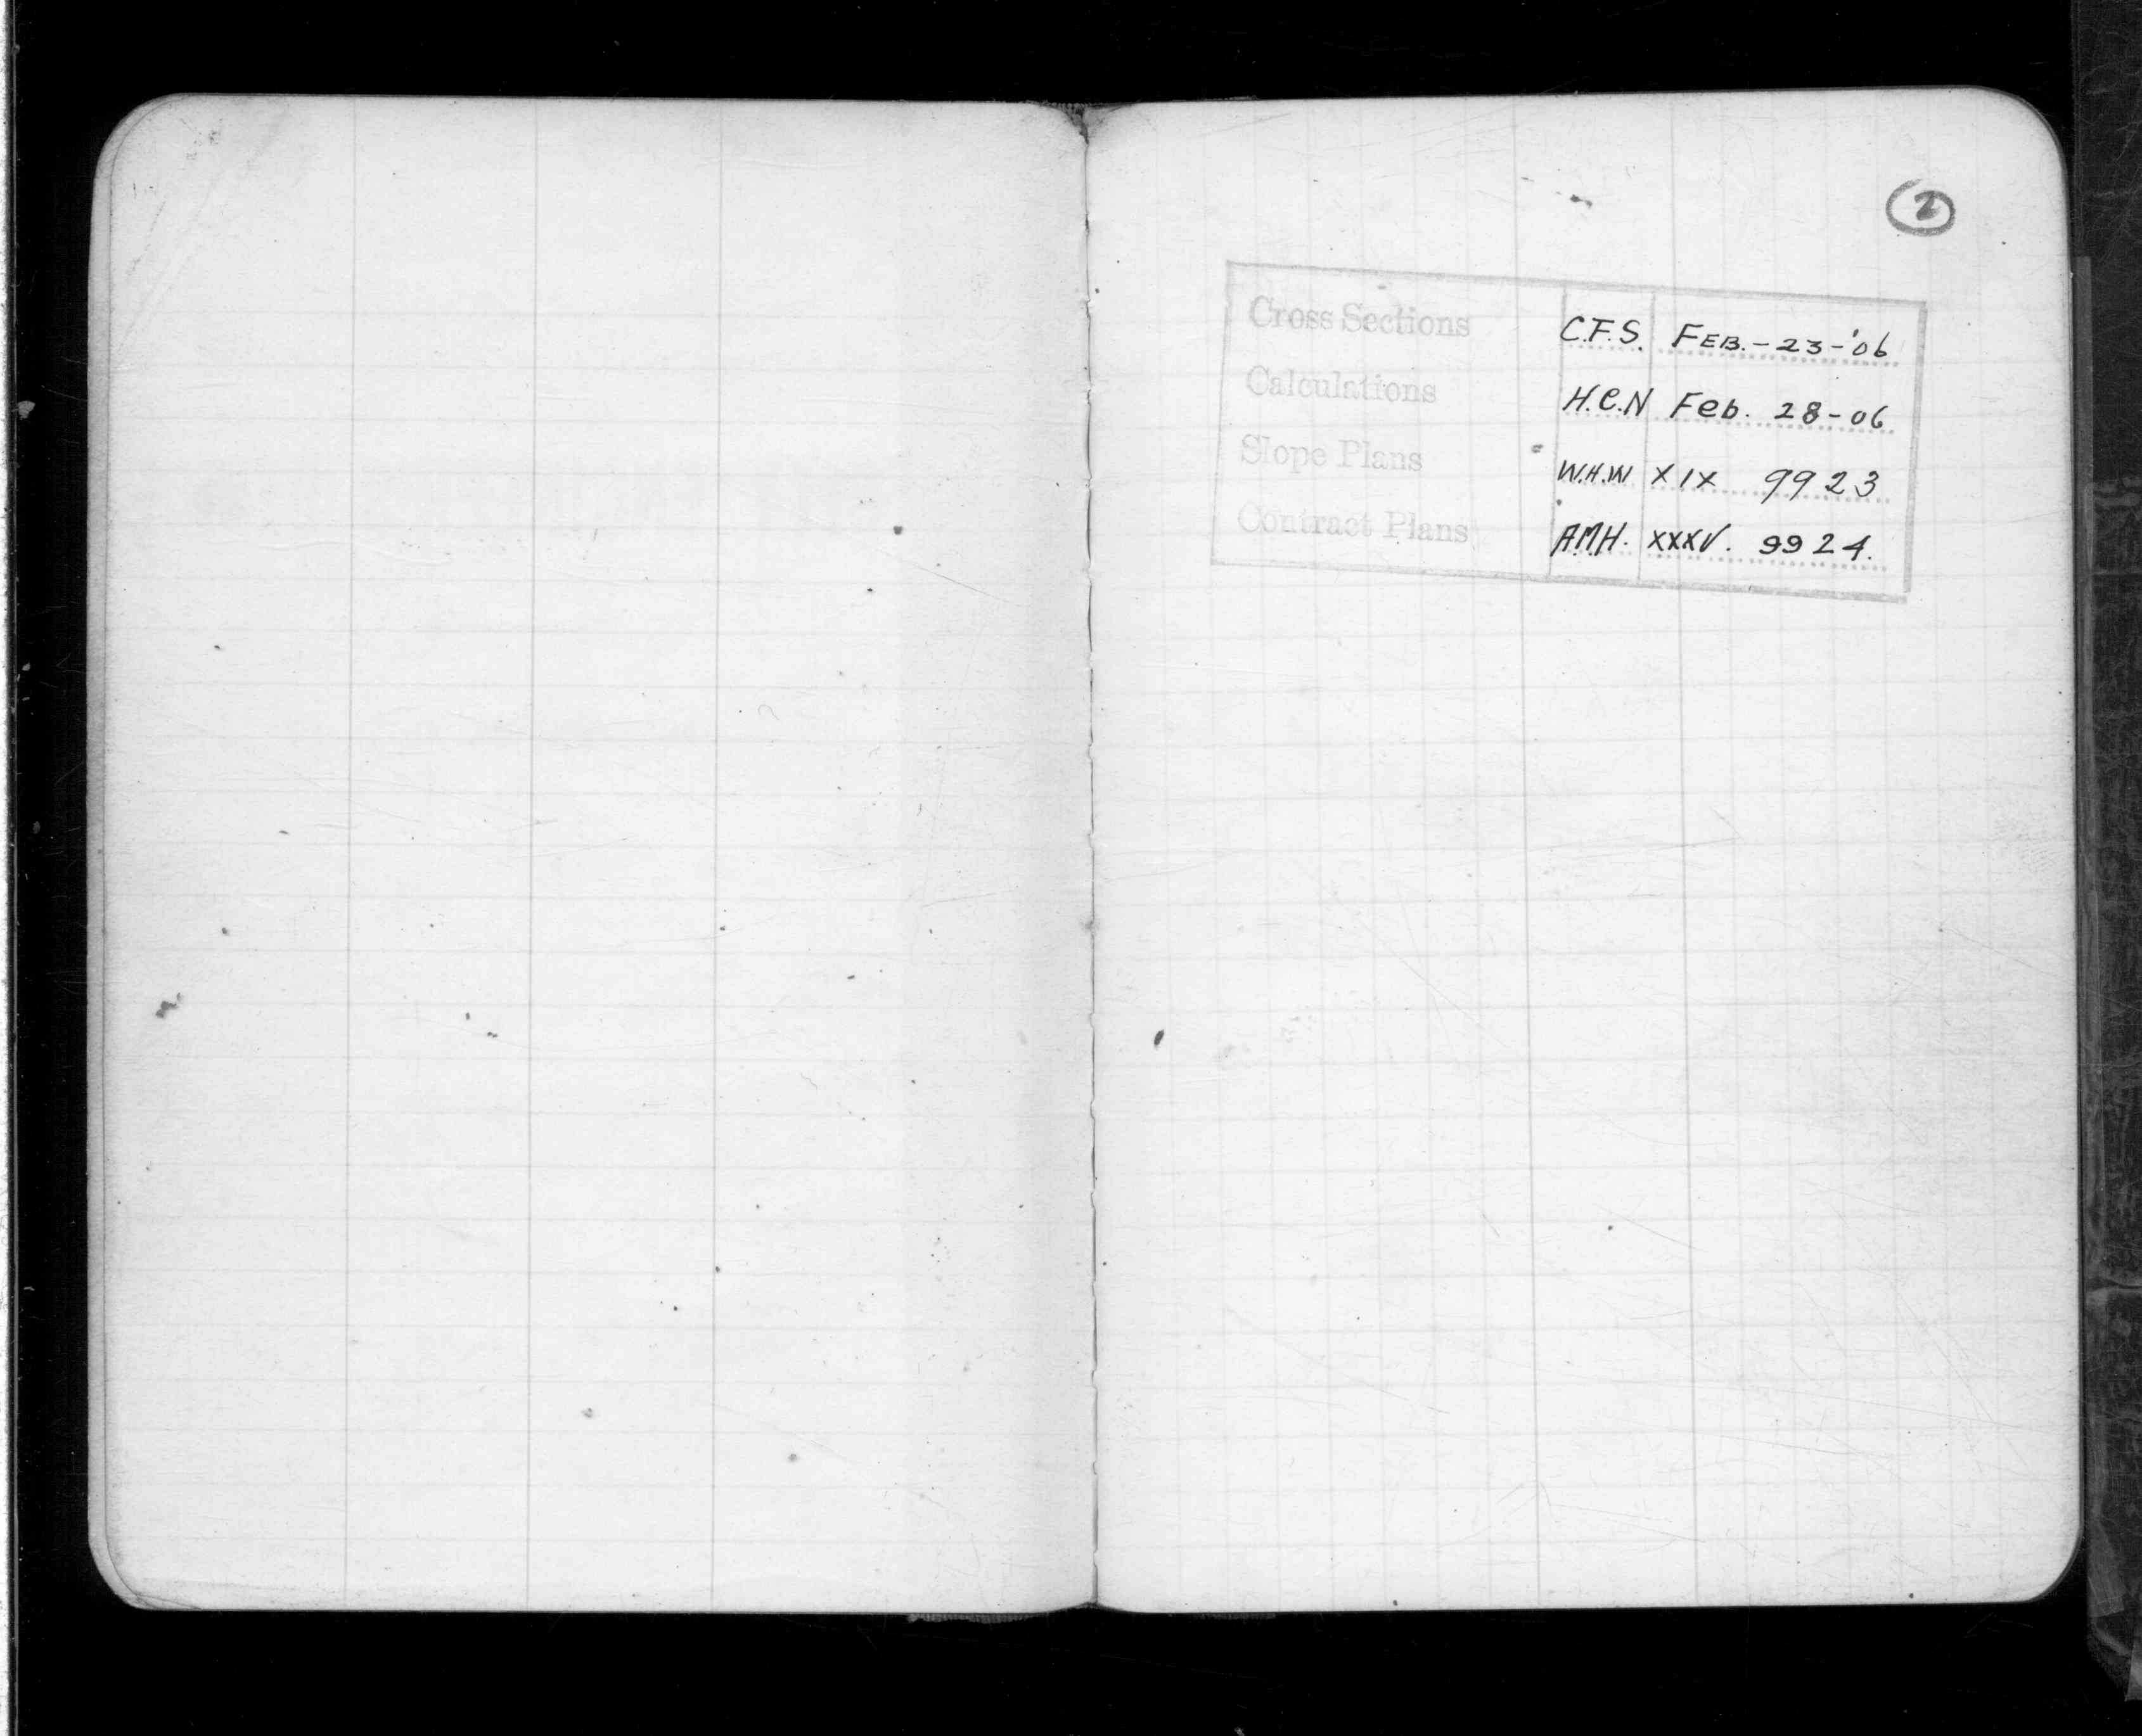 2
Cross Sections C.F.S. FEB.-23-'06
Calculations H.C.N Feb. 28-06
Slope Plans W.H.W XIX 9923
Contract Plans A.M.H. XXXV. 9924.